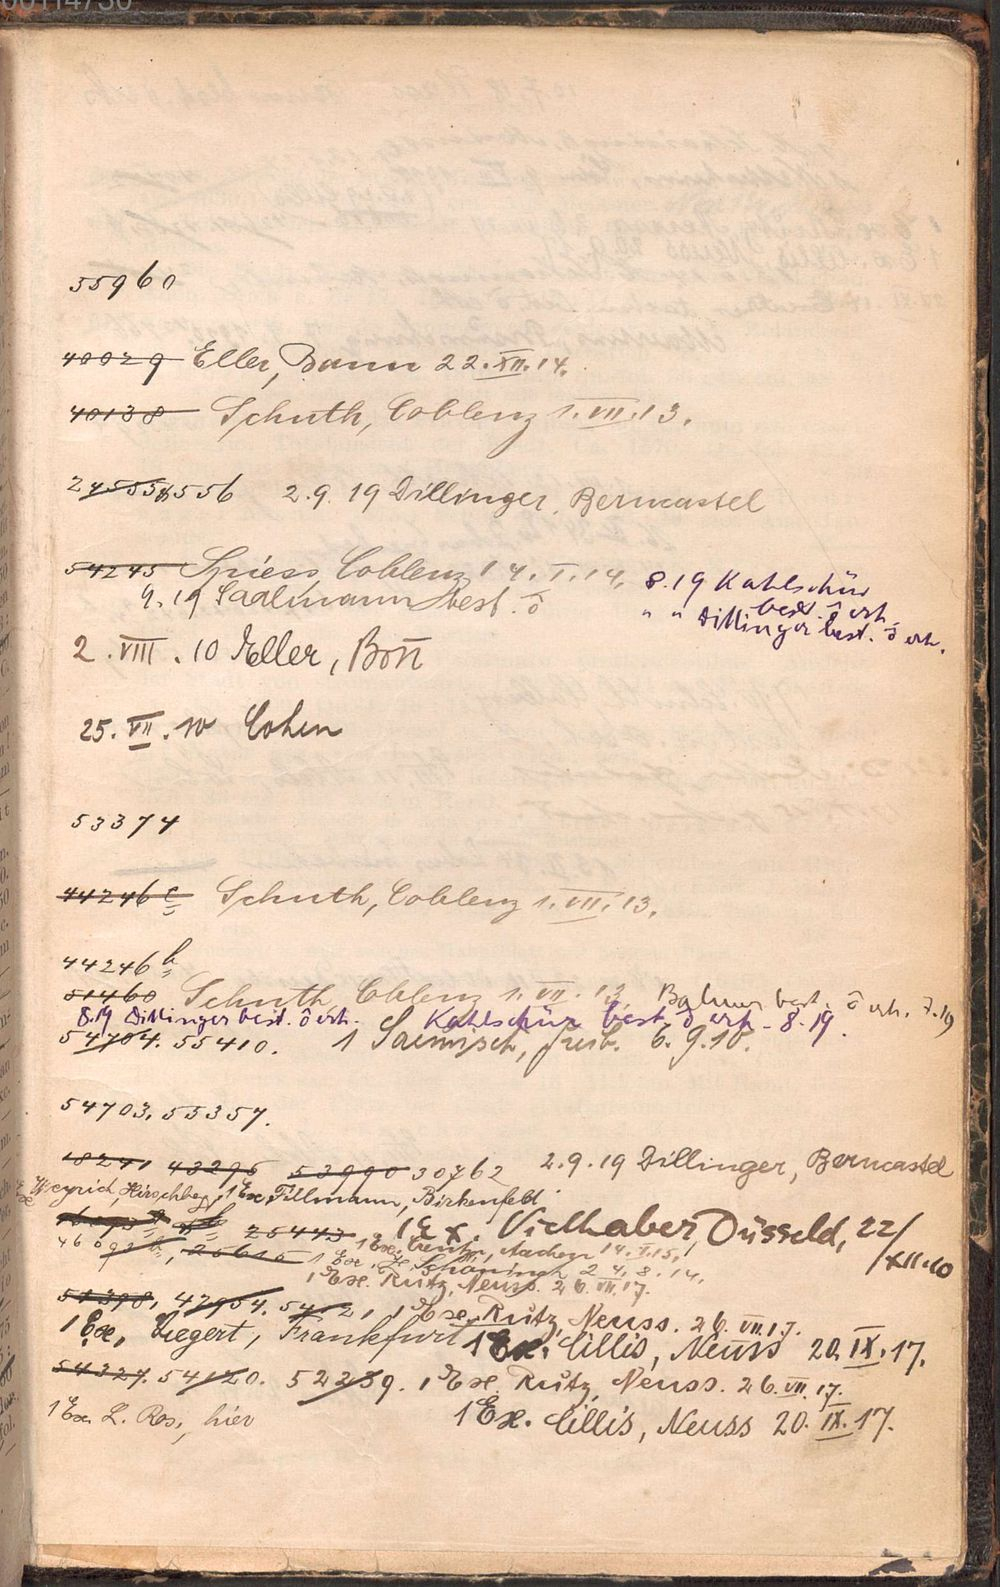 00114730
55960
40029 Eller, Bonn 22. XII. 14.
40138 Schuth, Coblenz 1. VII. 13.
24555 556 2.9.19 Dillinger, Berncastel
54245 Spiess, Coblenz 14. I. 14. 8.19 Kahlschür
9.19 Saalmann best. ô best. ô erh.
" " Dillinger best. ô erh.
2. VIII. 10 Eller, Boñ
25. VII. 10 Cohen
53374
44246 c Schuth, Coblenz 1. VII. 13.
44246 b
51460 Schuth, Coblenz 1. VII. 13. best. ô erh. 7.19
8.19 Dillinger best. ô erh. Kahlschür best. ô erh. - 8.19.
54704. 55410. 1 Saemisch, 6.9.10.
54703, 55357.
18241 43295 53990 30762 2.9.19 Dillinger, Berncastel
Weyrich, Hirschberg, 1 Ex. Tillmann, Birkenfeld
25443 1 Ex. Vielhaber, Düsseld, 22/XII.10
25615 1 Ex. Creutzer, Aachen 14. I. 15.
1 Ex. Schöningh 24. 8. 14.
1 Ex. Rutz, Neuss. 26. VII. 17.
54398, 47954. 1 Ex. Rutz, Neuss. 26. VII. 17.
1 Ex. Siegert, Frankfurt 1 Ex. Cillis, Neuss 20. IX. 17.
54327. 54120. 52259. 1 Ex. Rutz, Neuss. 26. VII. 17.
1 Ex. L. Ros, hier 1 Ex. Cillis, Neuss 20. IX. 17.